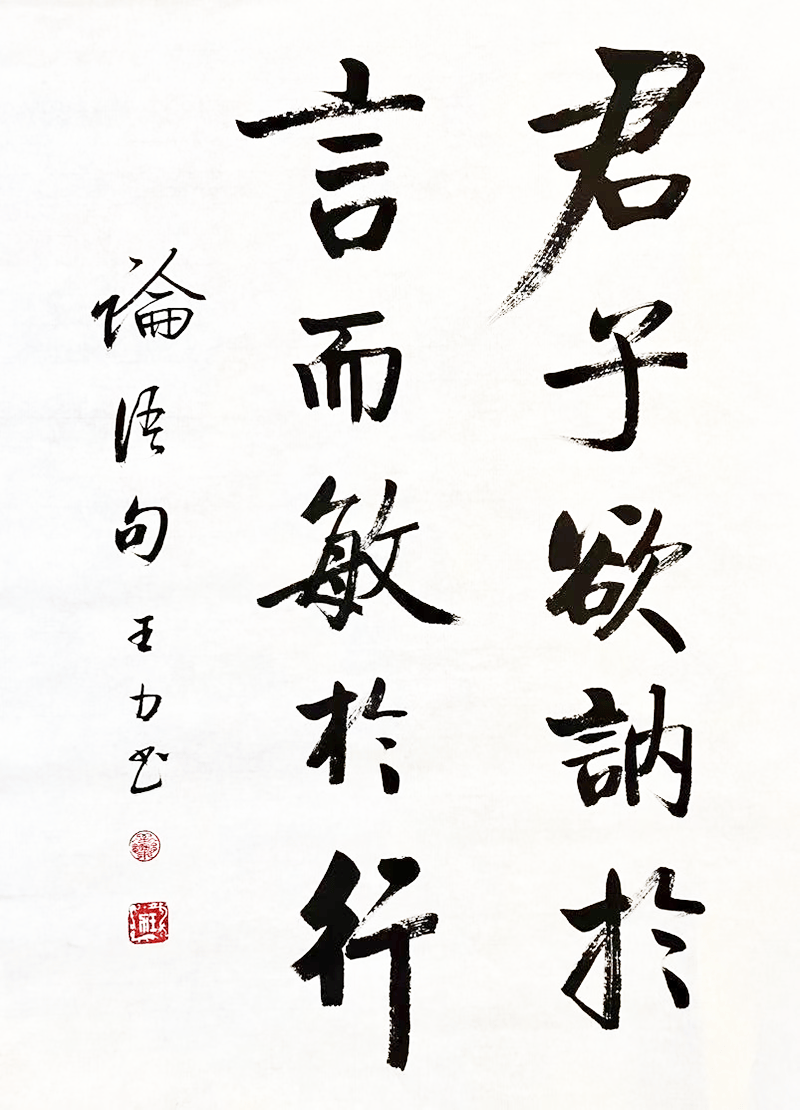 君子欲訥於
言而敏於行
論語句 王力书